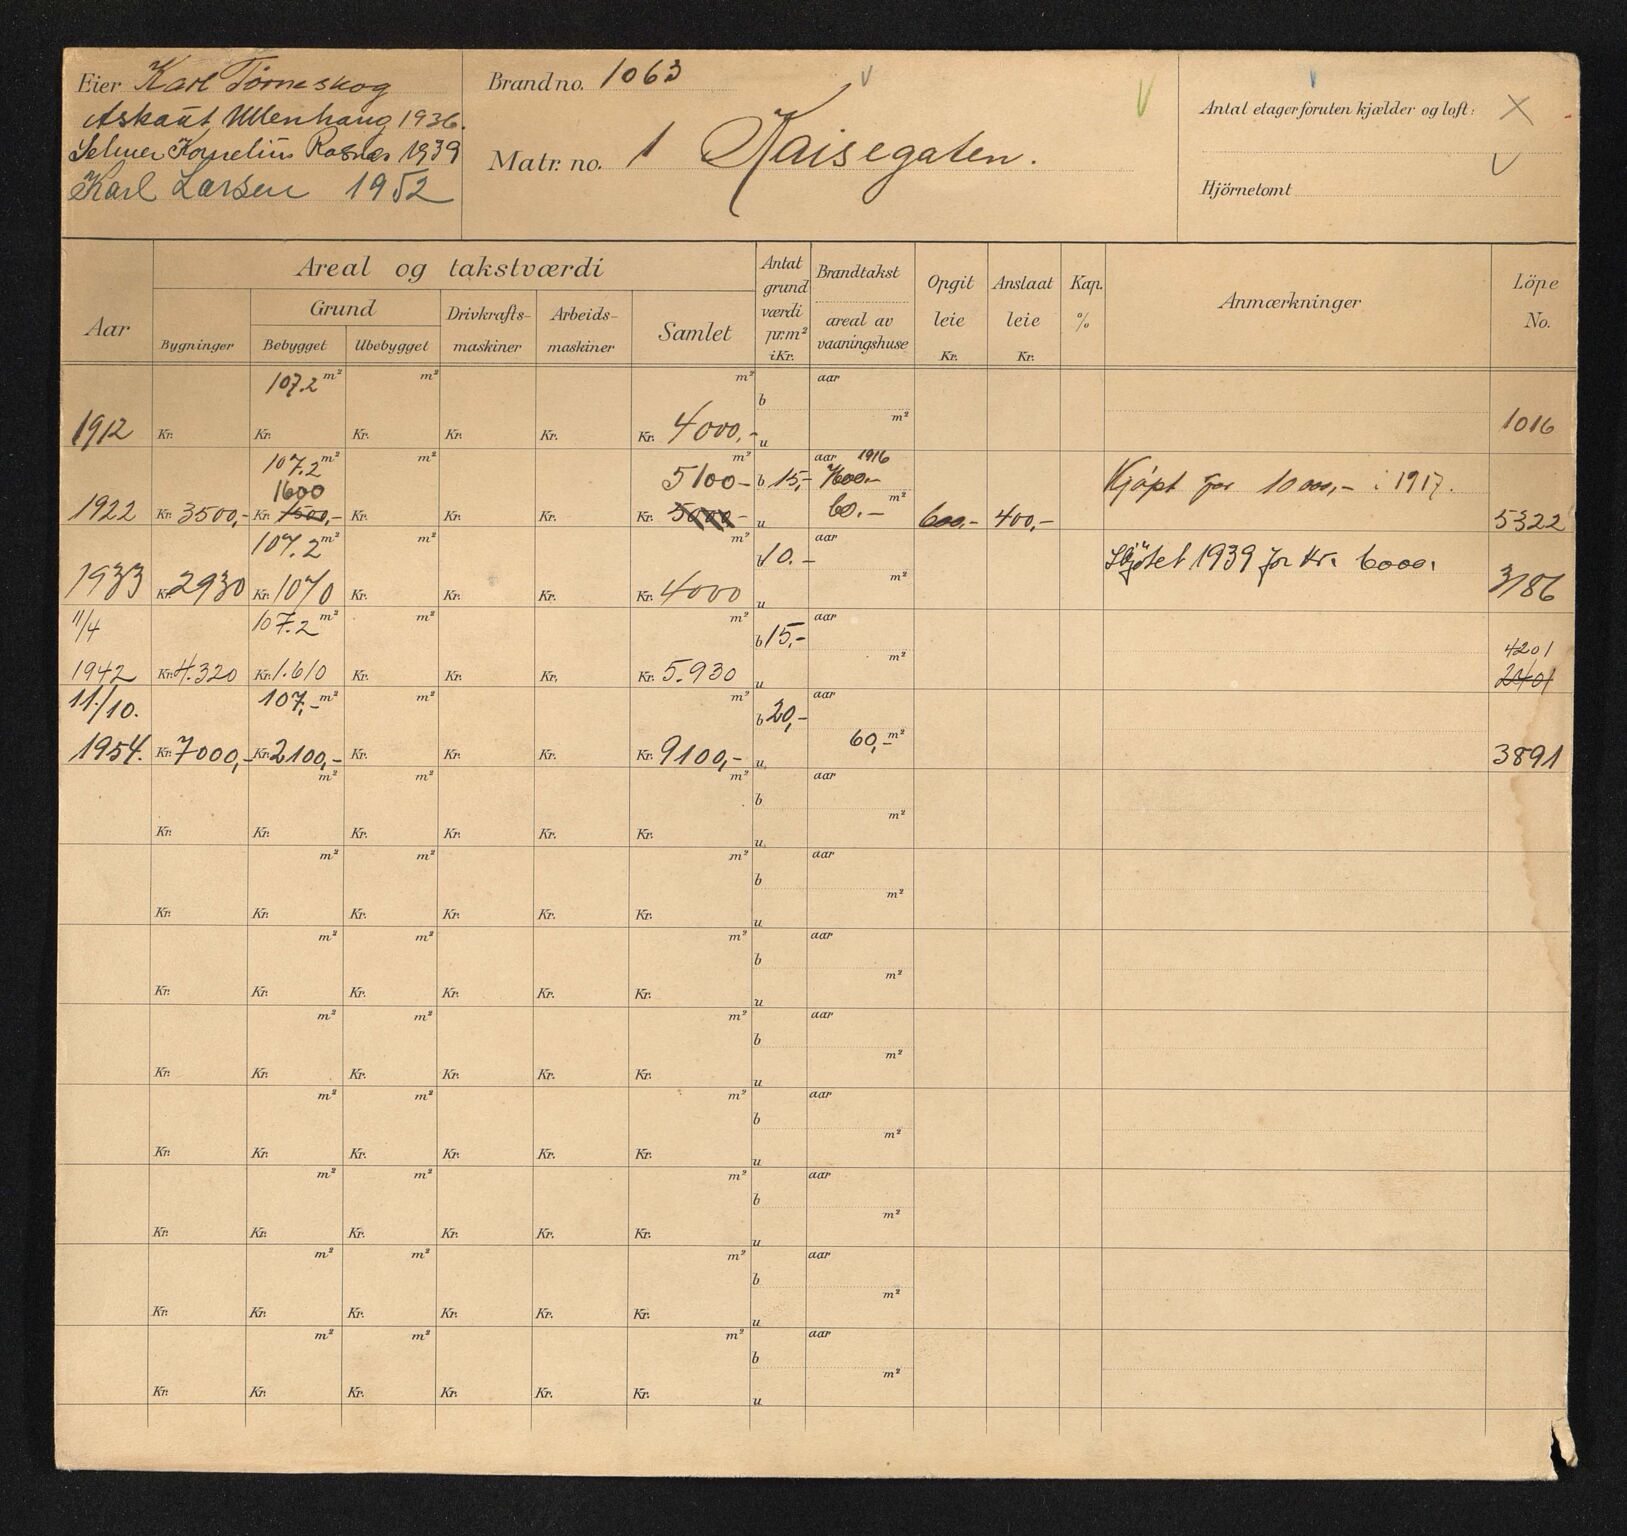 Eier Karl Törneskog
Askaut Ullenhaug 1936.
Selmer Kornelius Rosnes 1939
Karl Larsen 1952
Brand no. 1063
Matr. no. 1 Kaisegaten.
Antal etager foruten kjælder og loft: X
Hjörnetomt
Aar
Areal og takstværdi
Bygninger
Grund
Bebygget
Ubebygget
Drivkrafts-
maskiner
Arbeids-
maskiner
Samlet
Antat
grund
værdi
pr.m²
i Kr.
Brandtakst
areal av
vaaningshuse
Opgit
leie
Kr.
Anslaat
leie
Kr.
Kap.
%
Anmærkninger
Löpe
No.
107.2 m² m² m² aar
b m²
1912 Kr. Kr. Kr. Kr. Kr. Kr. 4000,- u 1016
107.2 m² m² m² aar 1916
1600 5100- b 15,- 7600.- Kjøpt for 10000,- i 1917.
1922 Kr. 3500,- Kr. 1500,- Kr. Kr. Kr. Kr. 5000- u 60.- m² 600.- 400,- 5322
107.2 m² m² m² aar
b 10.- m² Skjøtet 1939 for Kr. 6000.
1933 Kr. 2930 Kr. 1070 Kr. Kr. Kr. Kr. 4000 u 3186
11/4 107.2 m² m² m² aar
b 15,- m² 4201
1942 Kr. 4.320 Kr. 1.610 Kr. Kr. Kr. Kr. 5.930 u 2401
11./10. 107,- m² m² m² aar
b 20,-
1954. Kr. 7000,- Kr. 2100,- Kr. Kr. Kr. Kr. 9100,- u 60,- m² 3891
m² m² m² aar
b m²
Kr. Kr. Kr. Kr. Kr. Kr. u
m² m² m² aar
b m²
Kr. Kr. Kr. Kr. Kr. Kr. u
m² m² m² aar
b m²
Kr. Kr. Kr. Kr. Kr. Kr. u
m² m² m² aar
b m²
Kr. Kr. Kr. Kr. Kr. Kr. u
m² m² m² aar
b m²
Kr. Kr. Kr. Kr. Kr. Kr. u
m² m² m² aar
b m²
Kr. Kr. Kr. Kr. Kr. Kr. u
m² m² m² aar
b m²
Kr. Kr. Kr. Kr. Kr. Kr. u
m² m² m² aar
b m²
Kr. Kr. Kr. Kr. Kr. Kr. u